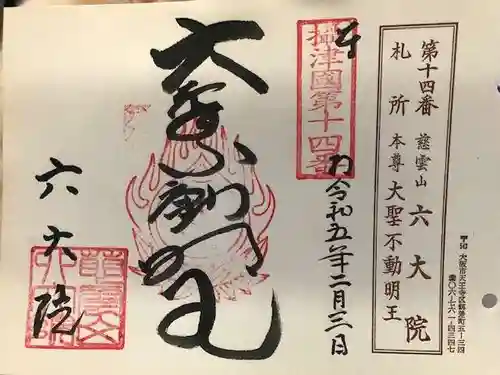 第十四番
札所
慈雲山 六大院
本尊 大聖不動明王
大阪市天王寺区餌差町五ー
攝津國第十四番
奉
令和五年二月三日
大聖不動明王
六大院